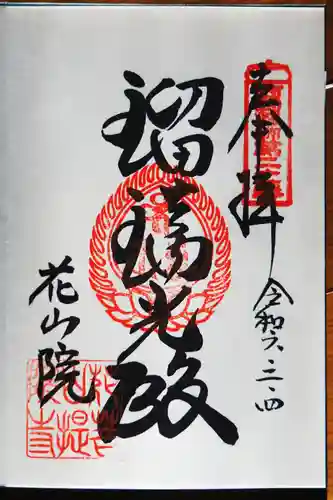 奉拝
令和六・三・四
瑠璃光殿
花山院